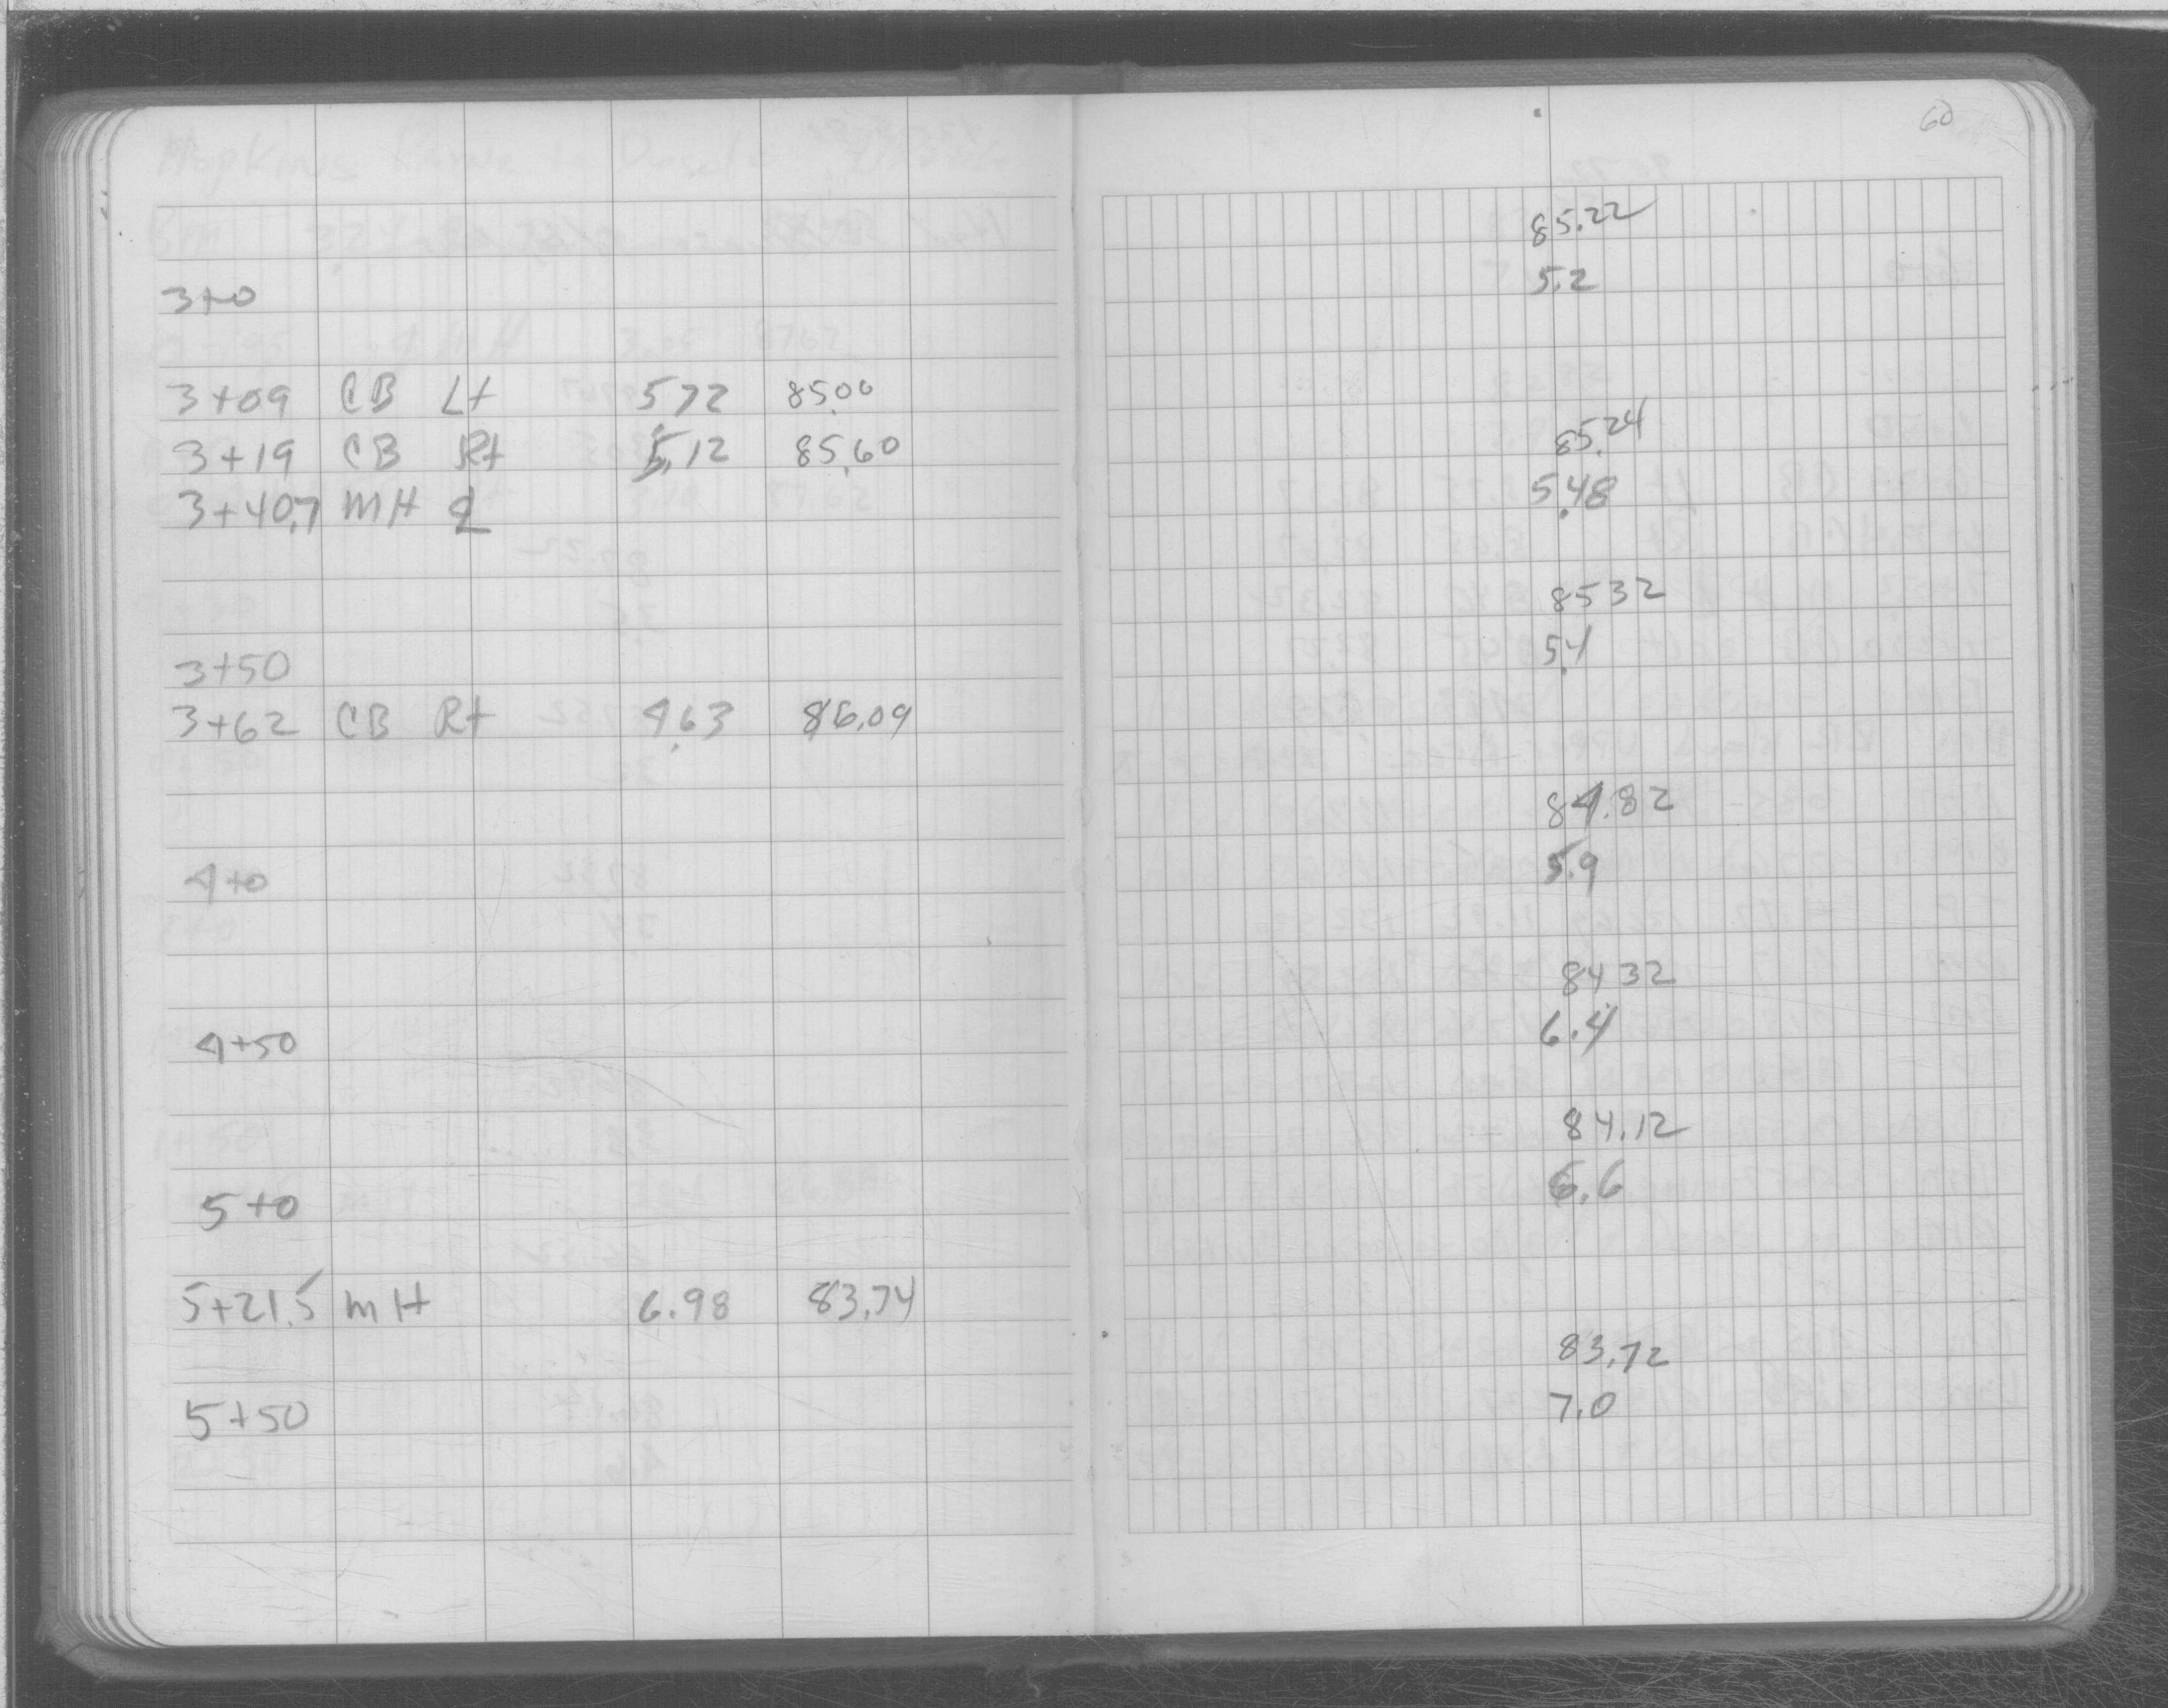 60
85.22
3+0 5.2
3+09 CB Lt 5.72 85.00
3+19 CB Rt 5.12 85.60
85.24
3+40.7 MH ℄ 5.48
85 32
3+50 5.4
3+62 CB Rt 4.63 86.09
84.82
4+0 5.9
84 32
4+50 6.4
84.12
5+0 6.6
5+21.5 MH 6.98 83.74
83.72
5+50 7.0